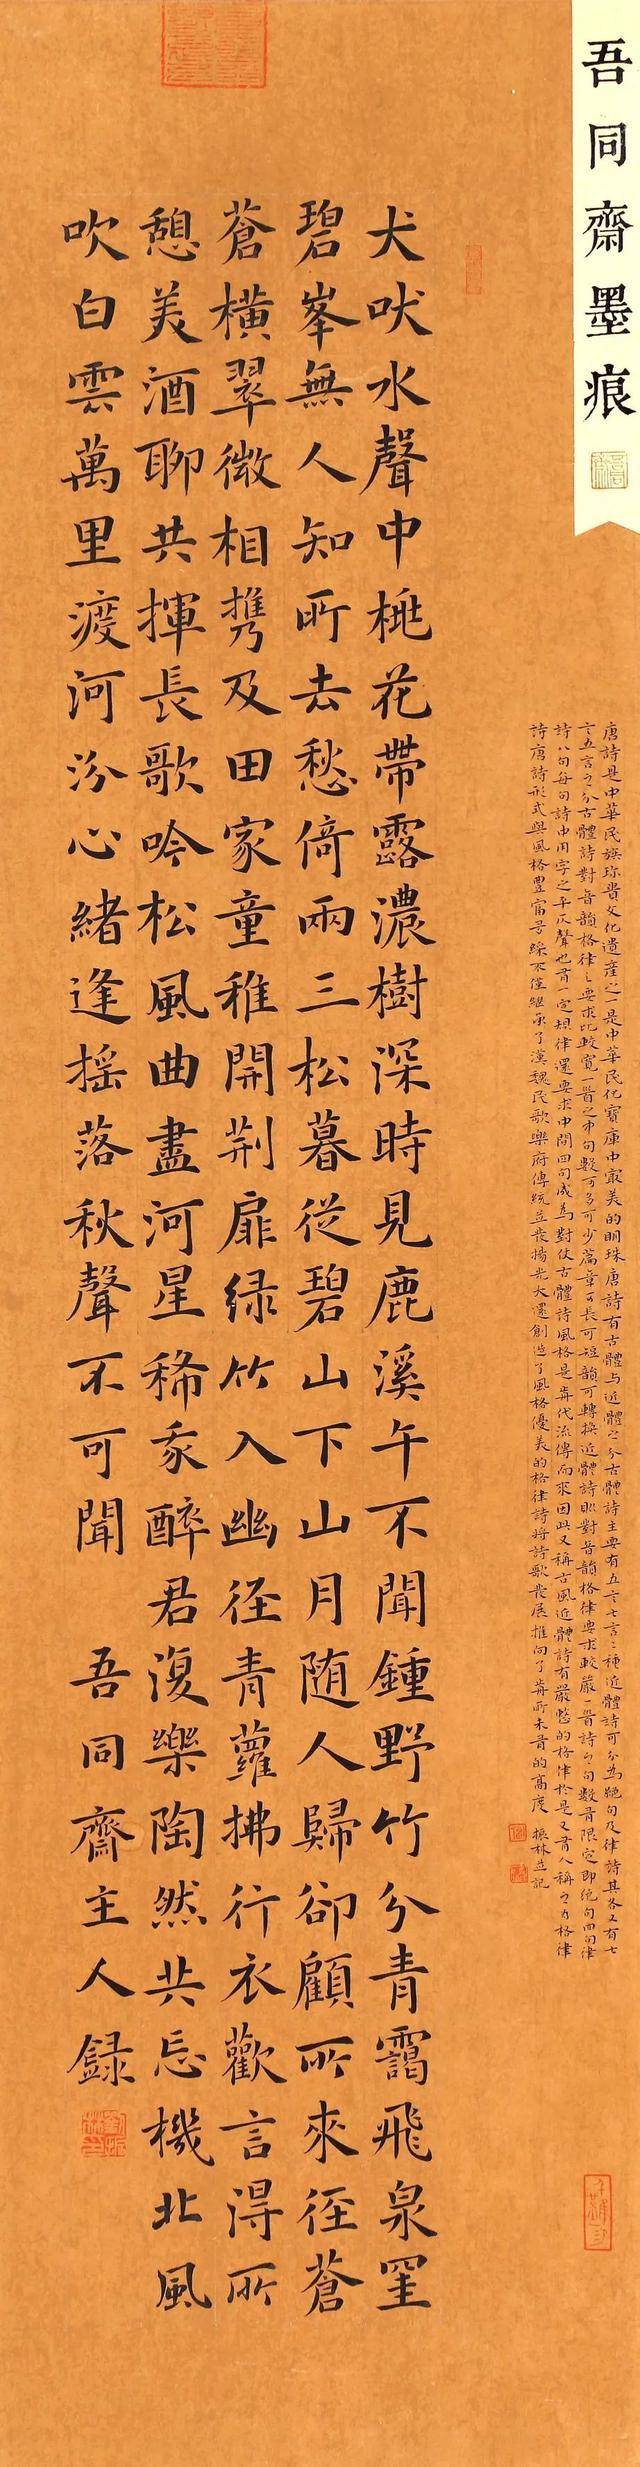 吾同齋墨痕
唐詩是中華民族珍貴文化遺產之一是中華民化寶庫中最美的明珠唐詩有古體与近體之分古體詩主要有五言七言二種近體詩可分為絕句及律詩其各又有七
言五言之分古體詩對音韻格律之要求比較寬一首之中句數可多可少篇章可長可短韻可轉換近體詩則對音韻格律要求較嚴一首詩之句數有限定即绝句四句律
詩八句每句詩中用字之平仄聲也有一定規律還要求中間四句成為對仗古體詩風格是前代流傳而來因此又稱古風近體詩有嚴整的格律於是又有人稱之为格律
詩唐詩形式與風格豐富多綵不僅継承了漢魏民歌樂府傳統並發揚光大還創造了風格優美的格律詩將詩歌發展推向了前所未有的高度 振林並記
犬吠水聲中桃花帶露濃樹深時見鹿溪午不聞鍾野竹分青靄飛泉罣
碧峯無人知所去愁倚兩三松暮從碧山下山月随人歸卻顧所來径蒼
蒼橫翠微相携及田家童稚開荆扉绿竹入幽径青蘿拂行衣歡言得所
憩美酒聊共揮長歌吟松風曲盡河星稀我醉君復樂陶然共忘機北風
吹白雲萬里渡河汾心緒逢摇落秋聲不可聞 吾同齋主人録